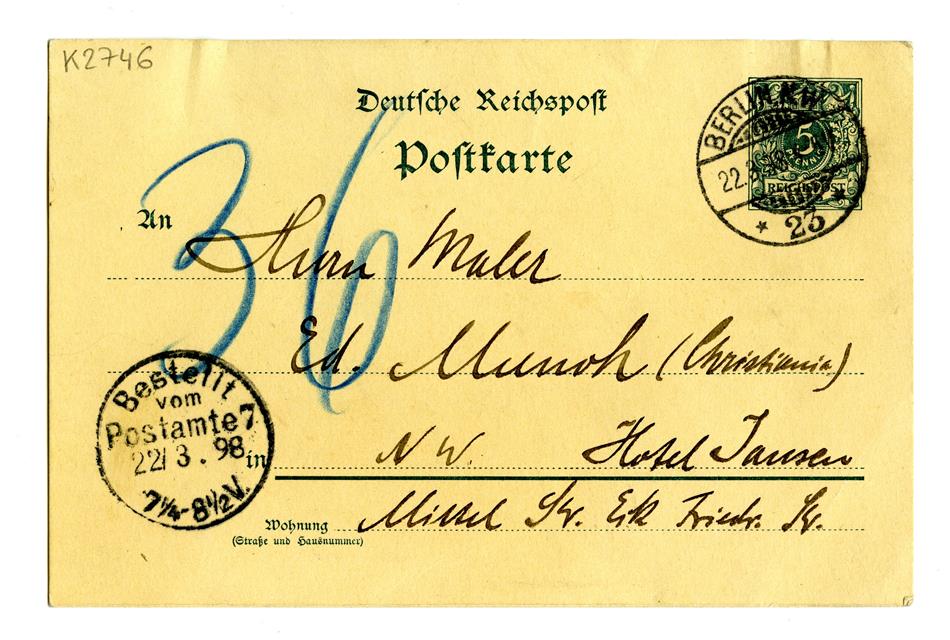 K2746
Deutsche Reichspost
Postkarte
BERLIN N.W.
22.3.98
* 23 *
5
PFENNIG
REICHSPOST
36
An
Herrn Maler
Ed. Munch (Christiania)
N W. Hotel Jansen
in
Mittel Str. Eck Friedr. Str.
Wohnung
(Straße und Hausnummer)
Bestellt
vom
Postamte 7
22/3.98
7¼-8½V.